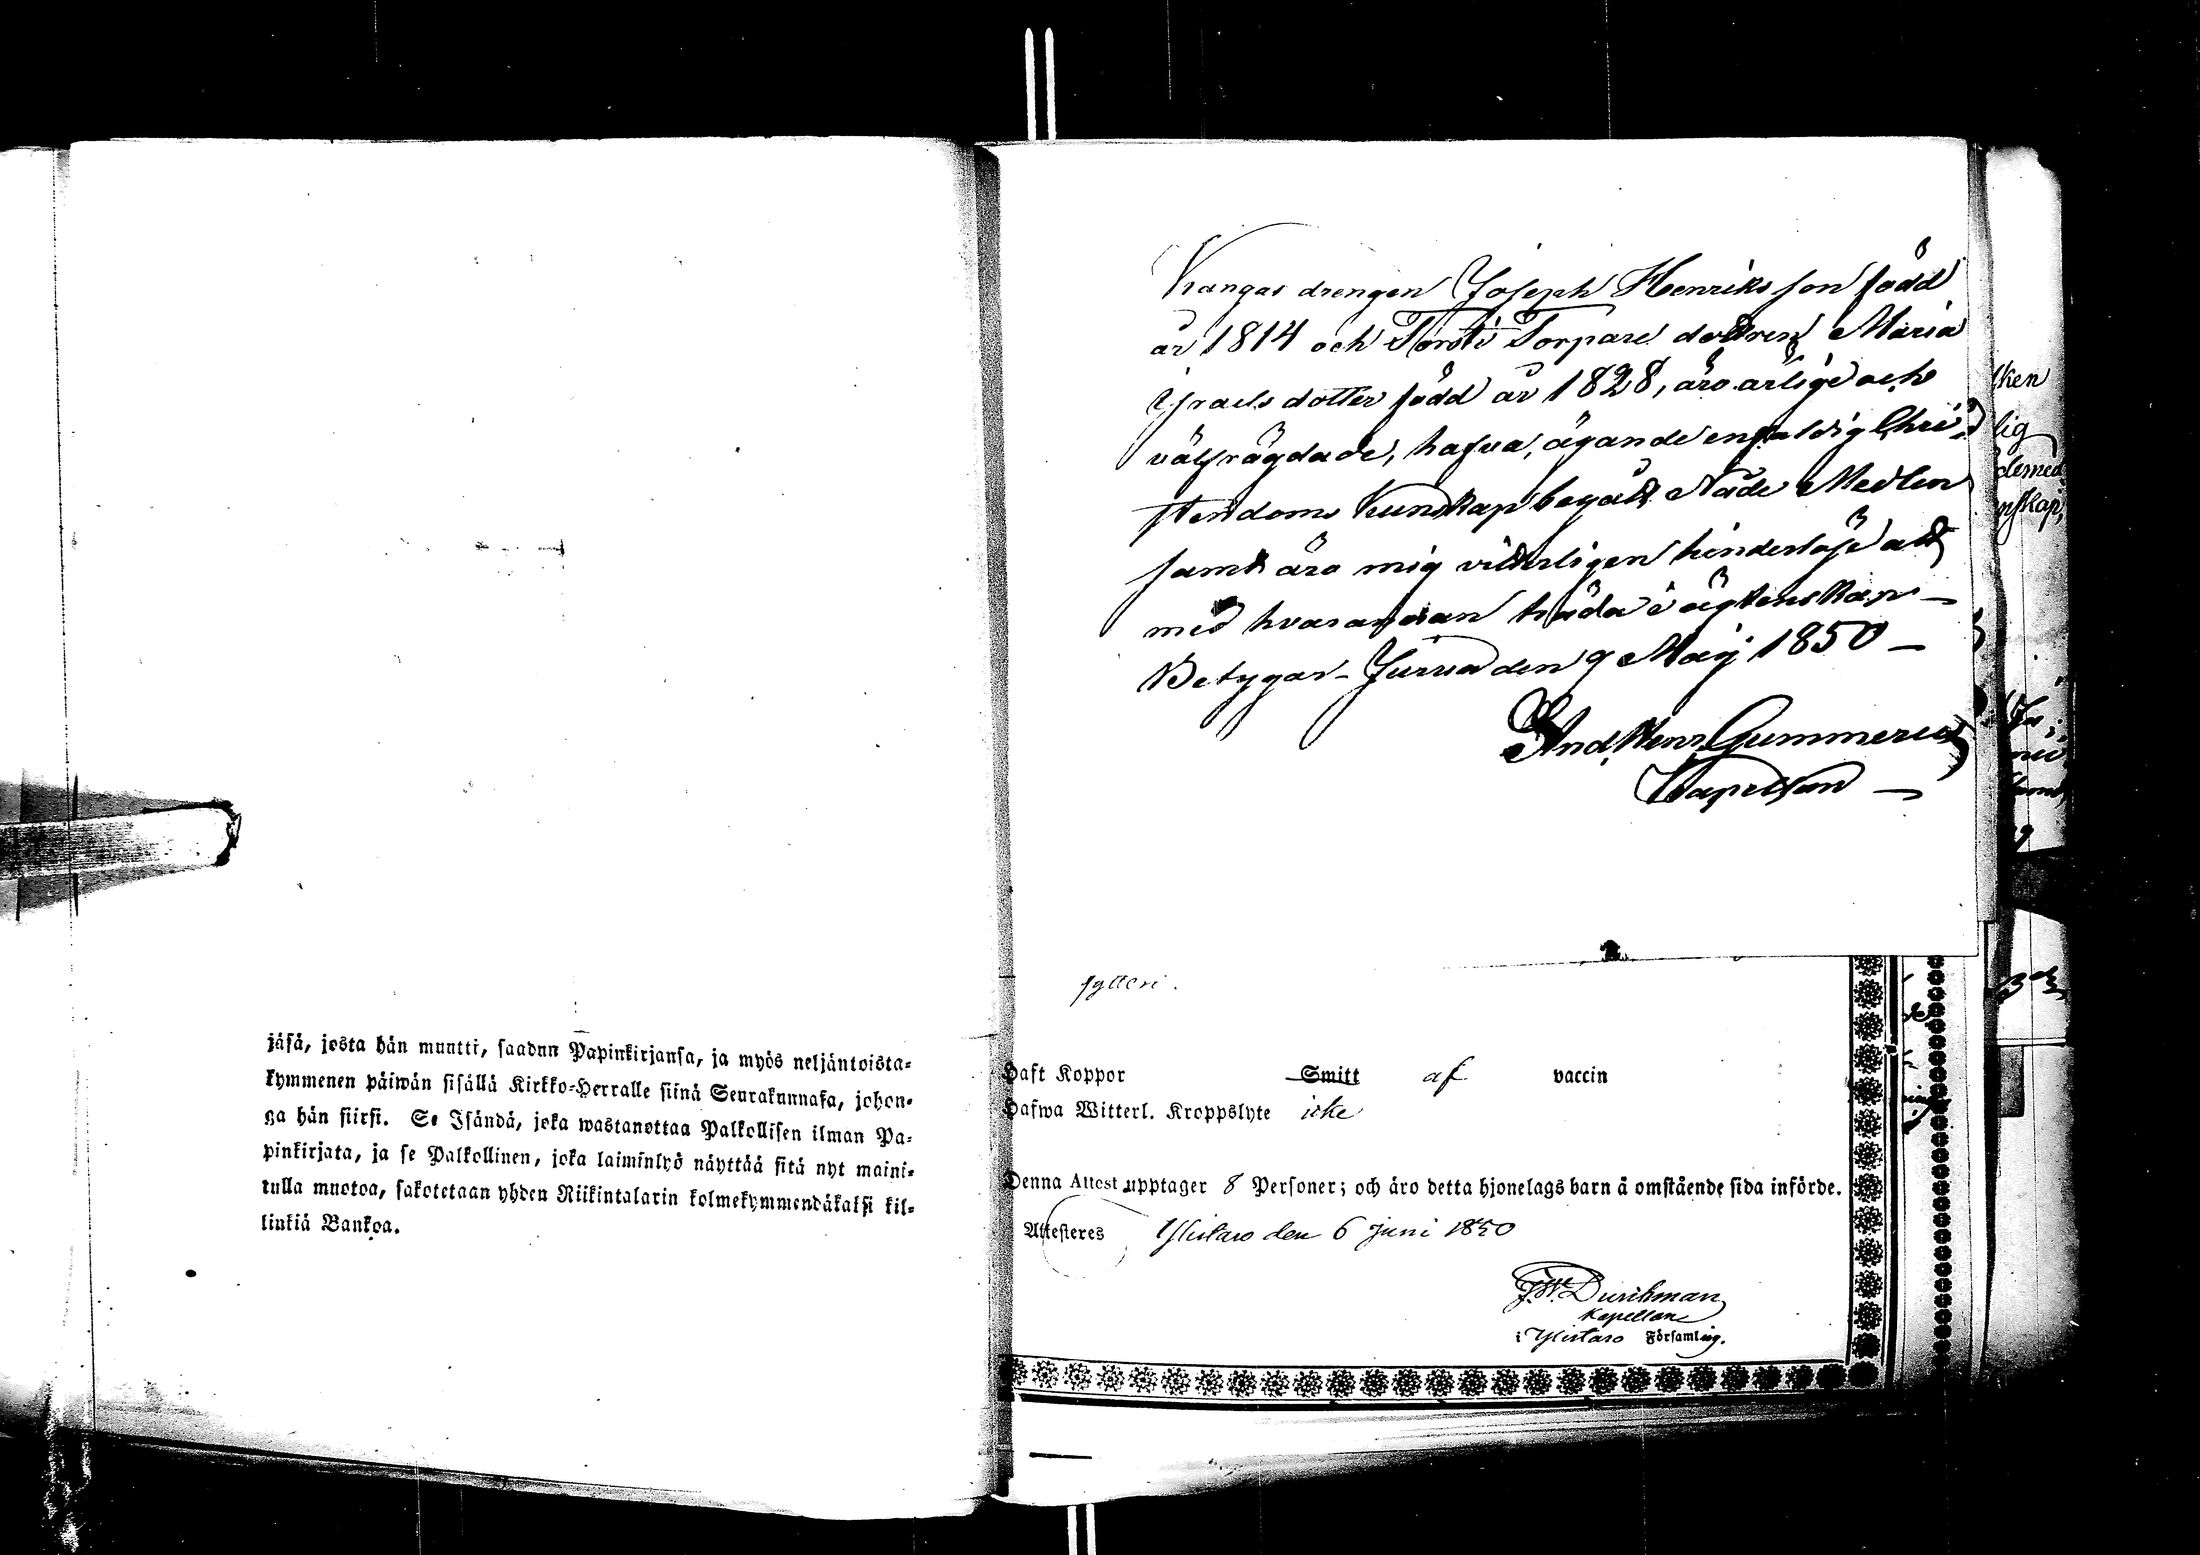 jäsä, josta hän muutti, saadun Papinkirjansa, ja myös neljäntoista-
kymmenen päiwän sisällä Kirkko-Herralle siinä Seurakunnasa, johon-
ga hän siirsi. Se Isändä, joka wastanottaa Palkollisen ilman Pa-
pinkirjata, ja se Palkollinen, joka laiminlyö näyttää sitä nyt maini-
tulla muotoa, sakotetaan yhden Riikintalarin kolmekymmendäkaksi kil-
linkiä Bankoa.
Kangas drengen Joseph Henriksson född
år 1814 och Torsti Torpare dottren Maria
Israels dotter född år 1828, äro ärlige och
välfrägdade, hafva, ägande enfaldig Chri-
stendoms Kunskap begått Nåde Medlen
samt äro mig vitterligen hinderlöse att
med hvarannan träda i ägtenskap —
Betygar - Jurva den 9 Maij 1850 —
And. Henr. Gummerus
Kapellan —
fytteri.
Haft Koppor Smitt af vaccin
Hafwa Witterl. Kroppslyte icke
Denna Attest upptager 8 Personer; och äro detta hjonelags barn å omstående sida införde.
Attesteres Ylistaro den 6 Juni 1850
F. W. Durchman
Kapellan
i Ylistaro Församling.
ken
lig
demed
nskap,